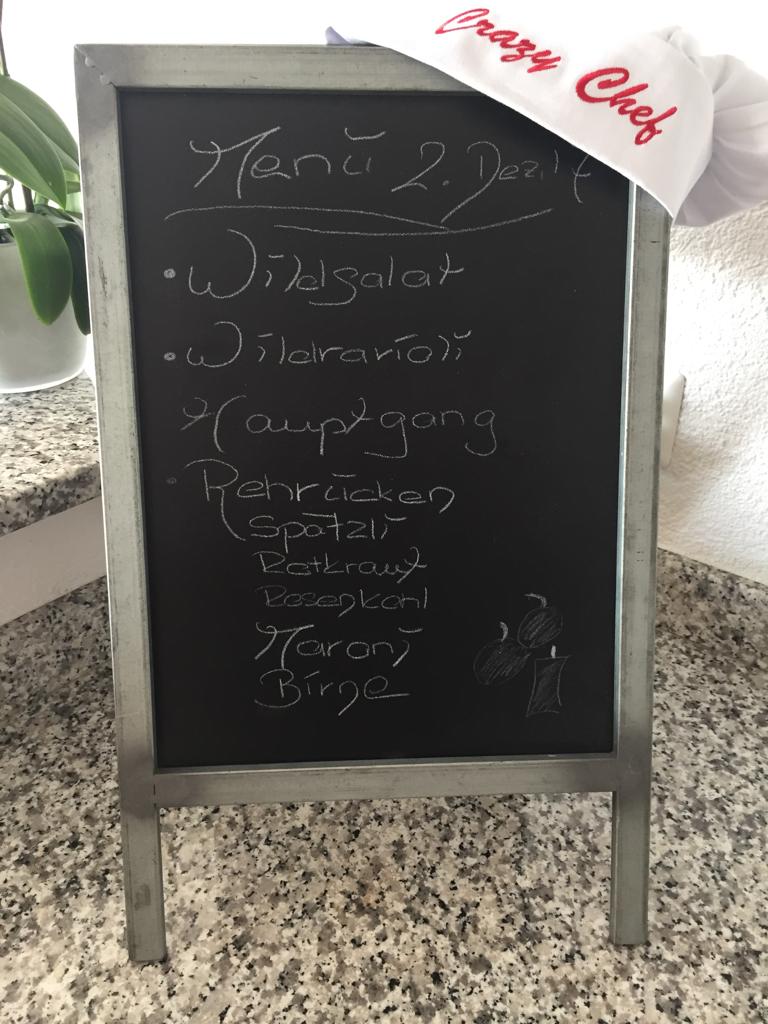 Crazy Chef
Menü 2. Dez.
• Wildsalat
• Wildravioli
Hauptgang
• Rehrücken
Spätzli
Rotkraut
Rosenkohl
Maroni
Birne